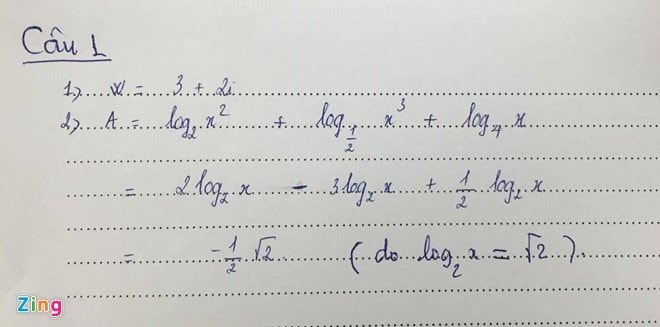 Câu 1
1) w = 3 + 2i
2) A = log₂ x² + log_{1/2} x³ + log₄ x
= 2 log₂ x - 3 log₂ x + 1/2 log₂ x
= -1/2 √2 (do log₂ x = √2)
Zing